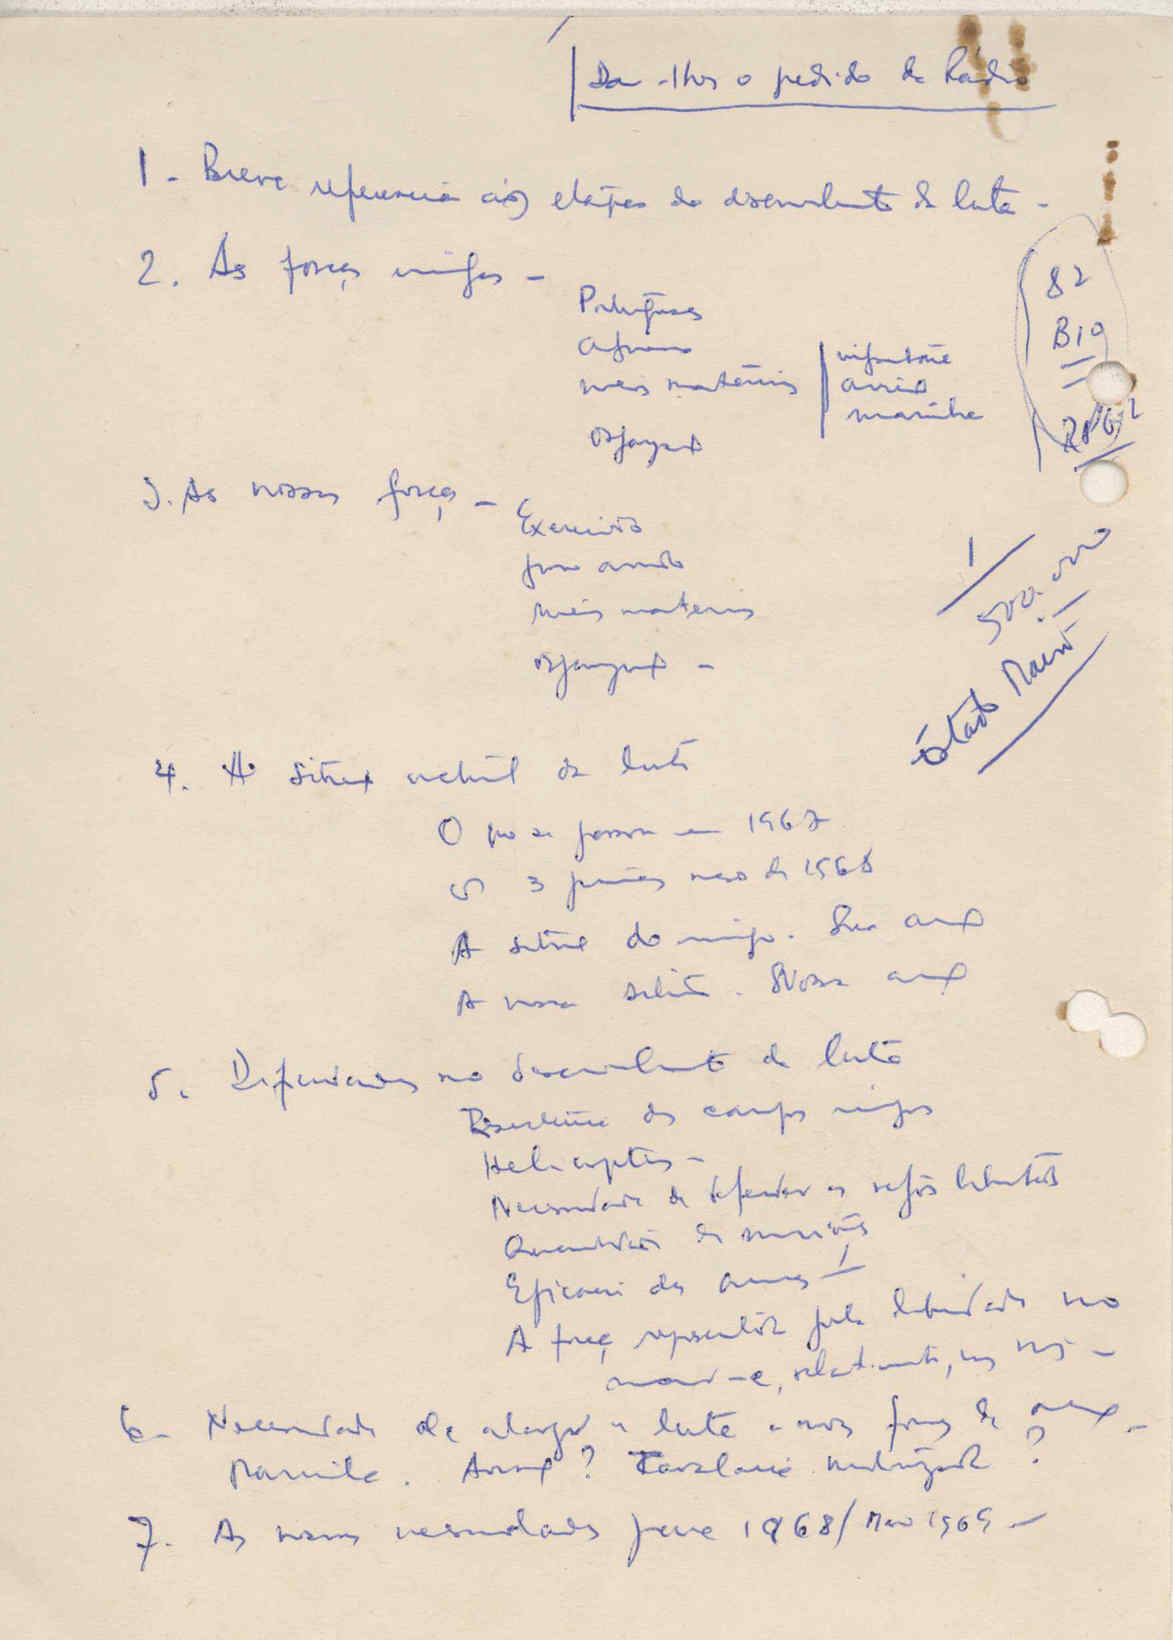 Dar-lhes o pedido da Rádio
1 - Breve referencia às etapas do desenvolvimento da luta -
2. As forças inimigas -
Portugueses
africanos
meios materiais
infantaria
aviação
marinha
82
B10
RPG-2
3. As nossas forças -
Exercito
povo armado
meios materiais
1
Estado Maior
4. A situação actual da luta
O que se passou em 1967
os 3 primeiros meses de 1968
A situação do inimigo. Sua acção
A nossa situação. Nossa acção
5. Dificuldades no desenvolvimento da luta
Resistência dos campos inimigos
Helicopteros -
Necessidade de defender as regiões libertadas
Quantidade de munições
Eficacia das armas
A força representada pela
mover-se, relativamente,
6 - Necessidade de alargar a luta a novas formas de acção -
Marinha. Aviação? Cavalaria motorizada?
7. As nossas necessidades para 1968/Maio 1969 -